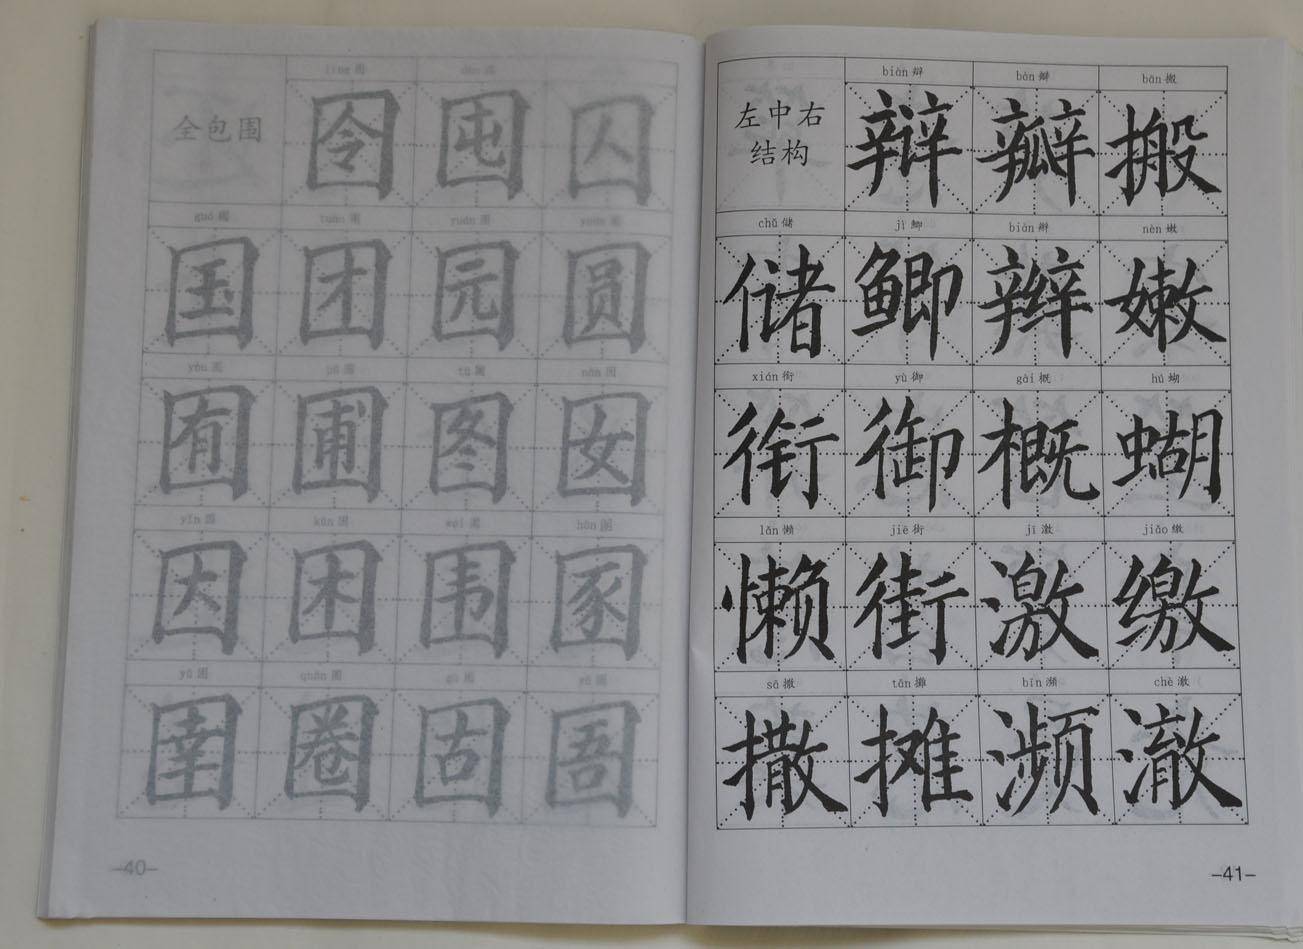 全包围
líng 囹 dùn 囤
囹 囤 囚
guó 国 tuán 团 yuán 园 yuán 圆
国 团 园 圆
yòu 囿 pǔ 圃 tú 图 nān 囡
囿 圃 图 囡
yīn 因 kùn 困 wéi 围 hùn 圂
因 困 围 圂
yǔ 圉 quān 圈 gù 固 yǔ 圄
圉 圈 固 圄
–40–
左中右
结构
biàn 辩 bàn 瓣 bān 搬
辩 瓣 搬
chǔ 储 jì 鲫 biàn 辨 nèn 嫩
储 鲫 辨 嫩
xián 衔 yù 御 gài 概 hú 蝴
衔 御 概 蝴
lǎn 懒 jiē 街 jī 激 jiǎo 缴
懒 街 激 缴
sā 撒 tān 摊 bīn 濒 chè 澈
撒 摊 濒 澈
–41–